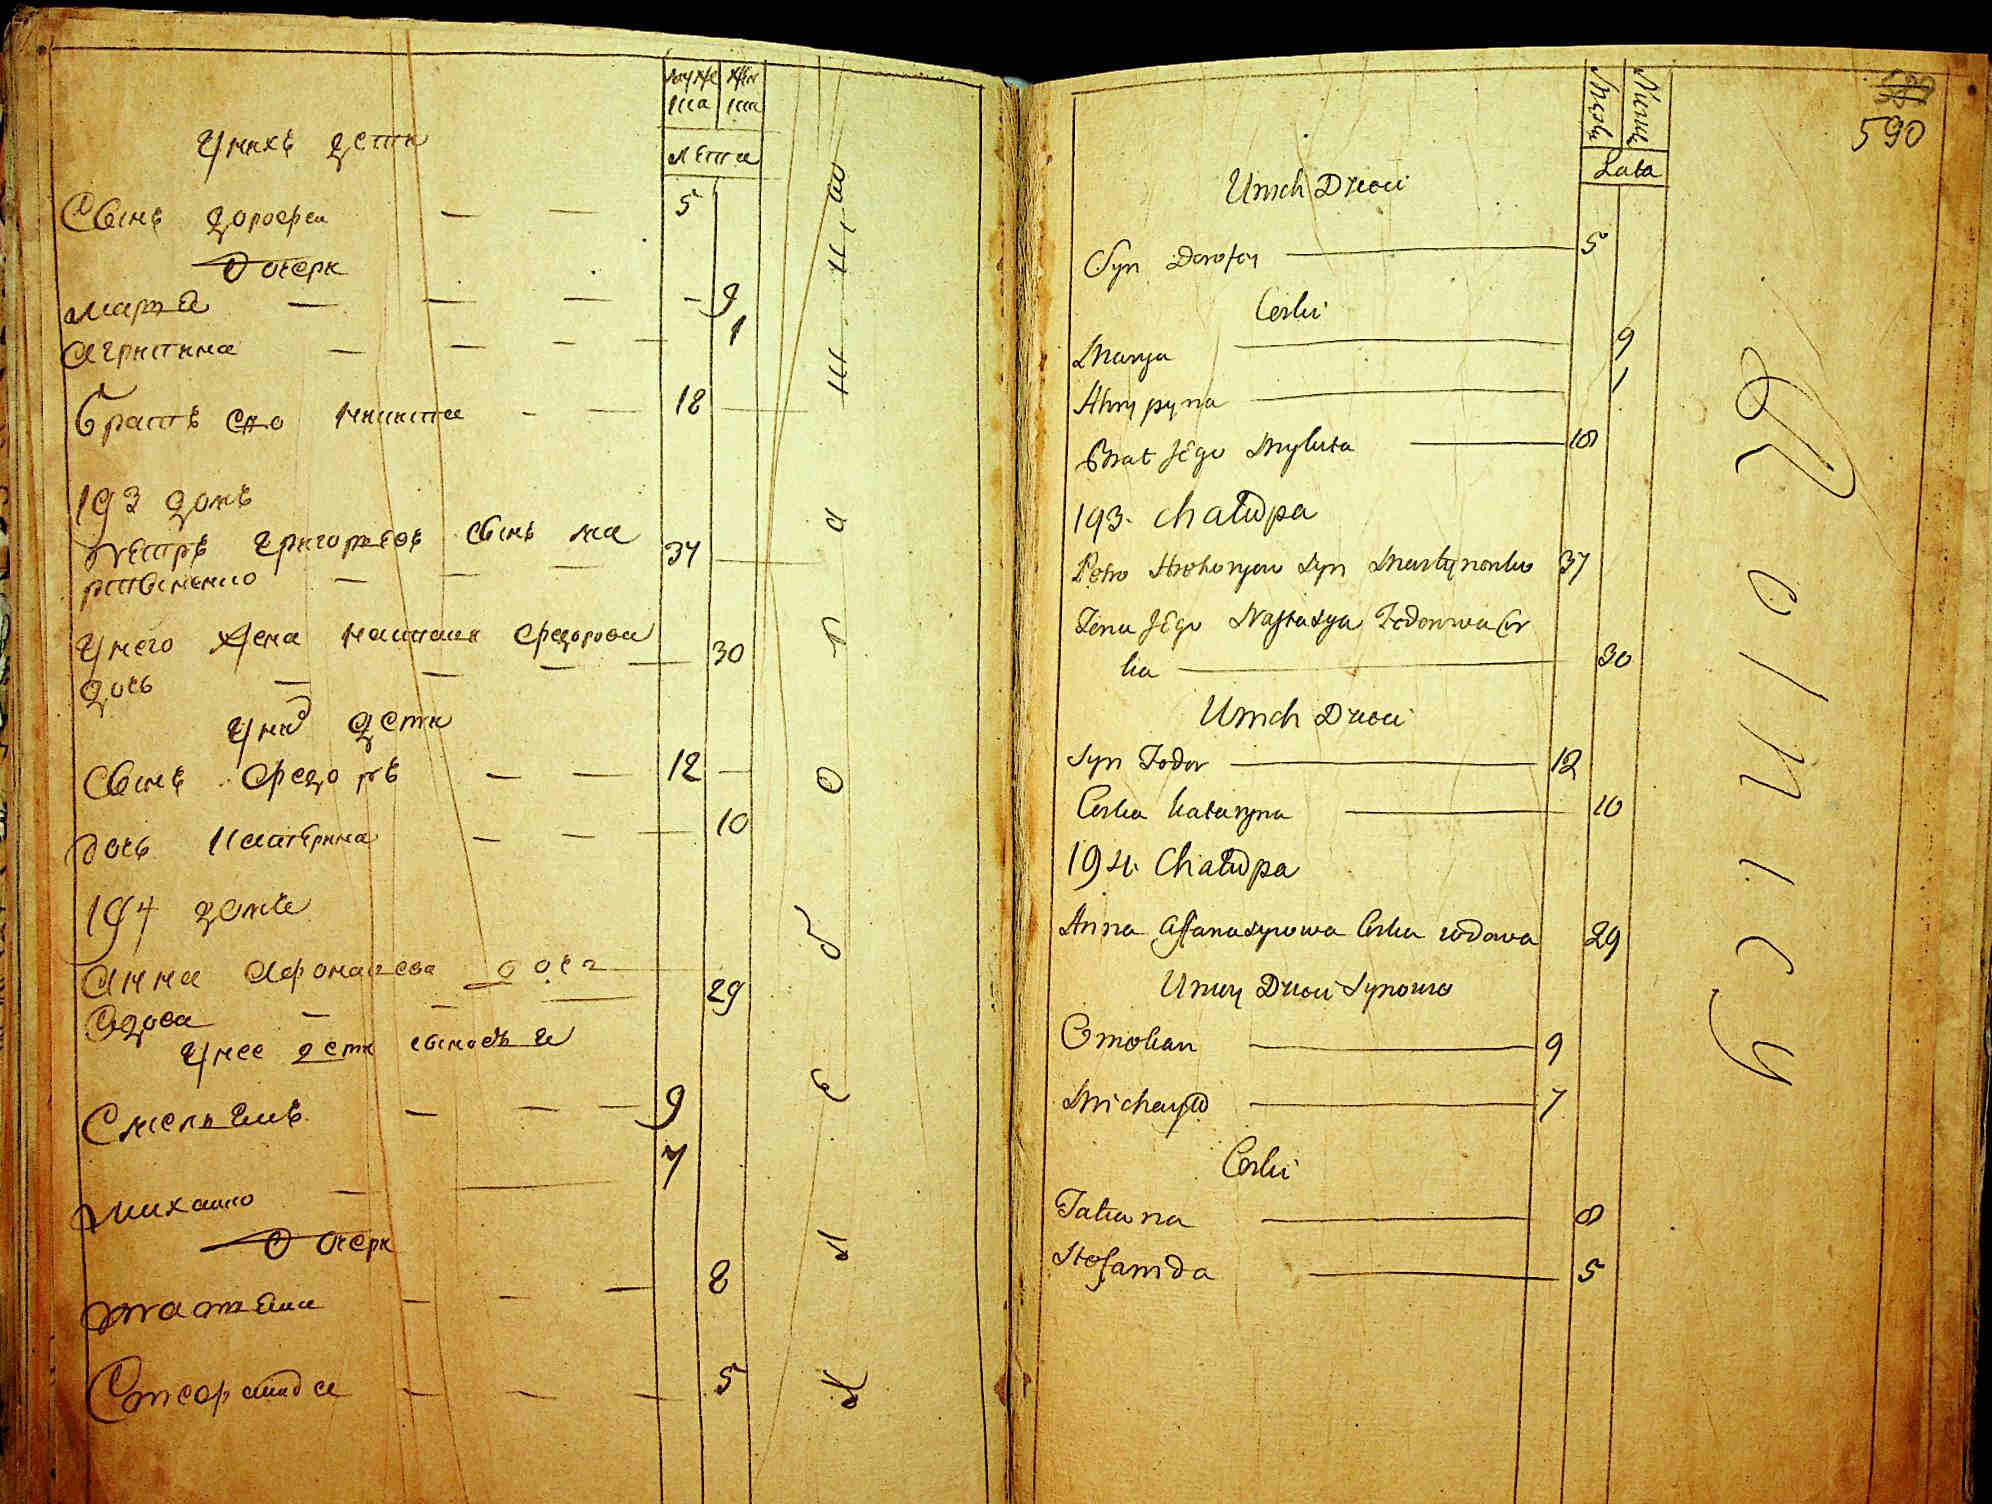 мужеска
женска
лета
У нихъ дети
Сынъ дорофеи 5
дочери
марья 9
агрипина 1
братъ его никита 18
193 домъ
петръ григорьевъ сынъ ма
ртыненко 37
У него жена настася федорова
дочь 30
У них дети
Сынъ федоръ 12
дочь катерина 10
194 домъ
анна афонасева дочь
вдова 29
У нее дети сыновья
Емельянъ 9
михаило 7
дочери
татьяна 8
Стефанида 5
хлебопашца
590
Męska
Lata
U nich Dzieci
Syn Dorofey 5
Corki
Marya 9
Ahrypyna 1
Brat Jego Mykita 18
193. Chałupa
Petro Hrehoryew Syn Martynenko 37
Żena Jego Nastasya Fedorowa Cor
ka 30
U nich Dzieci
Syn Fedor 12
Corka Kataryna 10
194. Chałupa
Anna Affanasyowa Corka wdowa 29
U niey Dzieci Synowie
Omelian 9
Michayło 7
Corki
Tatiana 8
Stefanida 5
Rolnicy